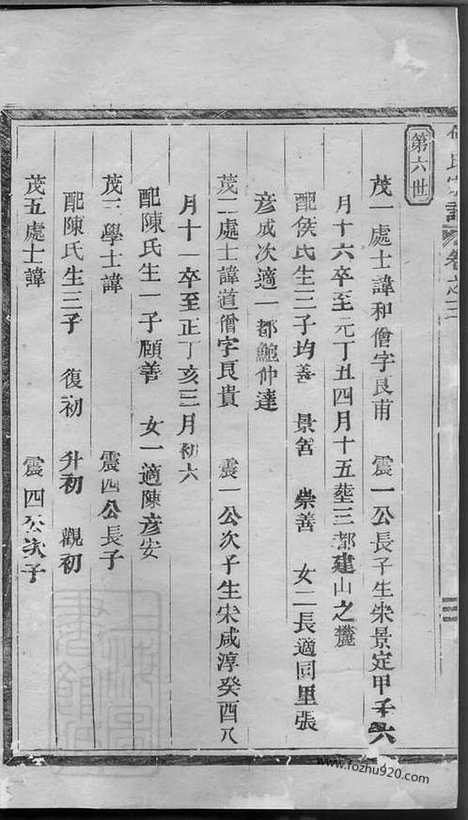 氏宗譜 卷之三
第六世
茂一處士諱和僧字艮甫 震一公長子生宋景定甲子六
月十六卒至元丁丑四月十五塟三都建山之麓
配侯氏生三子均善 景善 崇善 女二長適同里張
彦威次適一都鮑仲達
茂二處士諱道僧字艮貴 震一公次子生宋咸淳癸酉八
月十一卒至正丁亥三月初六
配陳氏生一子顧善 女一適陳彦安
茂三學士諱 震四公長子
配陳氏生三子 復初 升初 觀初
茂五處士諱 震四公次子
www.fozhu920.com